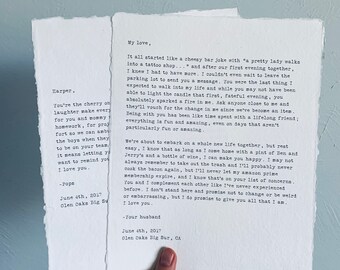 My love,
It all started like a cheesy bar joke with "a pretty lady walks
into a tattoo shop..." and after our first evening together,
I knew I had to have more. I couldn't even wait to leave the
parking lot to send you a message. You were the last thing I
expected to walk into my life and while you may not have been
able to light the candle that first, fateful evening, you
absolutely sparked a fire in me. Ask anyone close to me and
they'll vouch for the change in me since we've become an item.
Being with you has been like time spent with a lifelong friend;
everything is fun and amazing, even on days that aren't
particularly fun or amazing.
We're about to embark on a whole new life together, but rest
easy, I know that as long as I come home with a pint of Ben and
Jerry's and a bottle of wine, I can make you happy. I may not
always remember to take out the trash and I'll probably never
cook the bacon again, but I'll never let my amazon prime
membership expire, and I know that's on your list of concerns.
You and I complement each other like I've never experienced
before. I don't stand here and promise not to change or be weird
or embarrassing, but I do promise to give you all that I am.
I love you.
-Your husband
June 6th, 2017
Glen Oaks Big Sur, CA
Harper,
You're the cherry on
laughter make every
for you and mommy
homework, for
fort as we can
the boys when they
to be on your team
it means letting you
want to remind you
I love you.
-Pops
June 6th, 2017
Glen Oaks Big Sur,